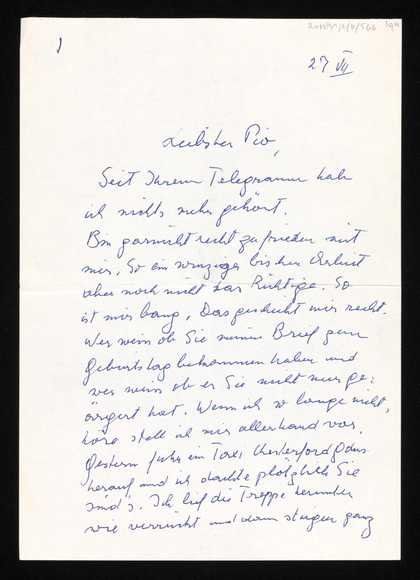 27 VII
Liebster Pio,
Seit Ihrem Telegramm hab
ich nichts mehr gehört.
Bin garnicht recht zufrieden mit
mir. So ein winziger bis hin
aber noch nicht das Richtige. So
ist mir bang. Das geschieht mir recht.
Wer weiss ob Sie meinen Brief zum
Geburtstag bekommen haben und
wer weiss ob er Sie nicht nur ge:
ärgert hat. Wenn ich so lange nichts
höre stell ich mir allerhand vor.
Gestern fuhr ein Taxi Chesterford Gdns
herauf und ich dachte plötzlich Sie
sind's. Ich lief die Treppe herunter
wie verrückt und dann stiegen ganz